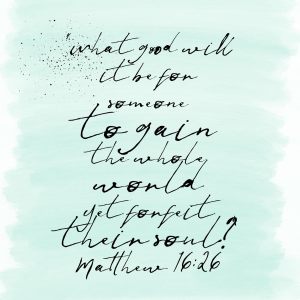 what good will
it be for
someone
to gain
the whole
world
yet forfeit
their soul?
Matthew 16:26